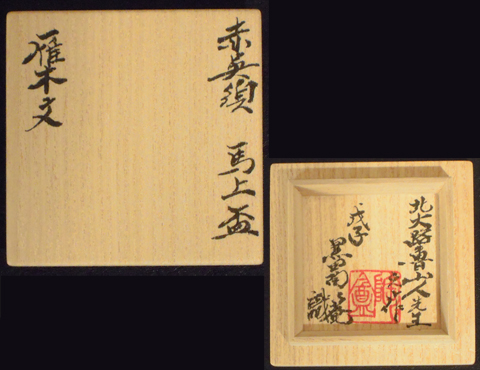 赤呉須 馬上盃
雁木文
北大路魯山人先生
之作
戊子
黒田陶々庵
識